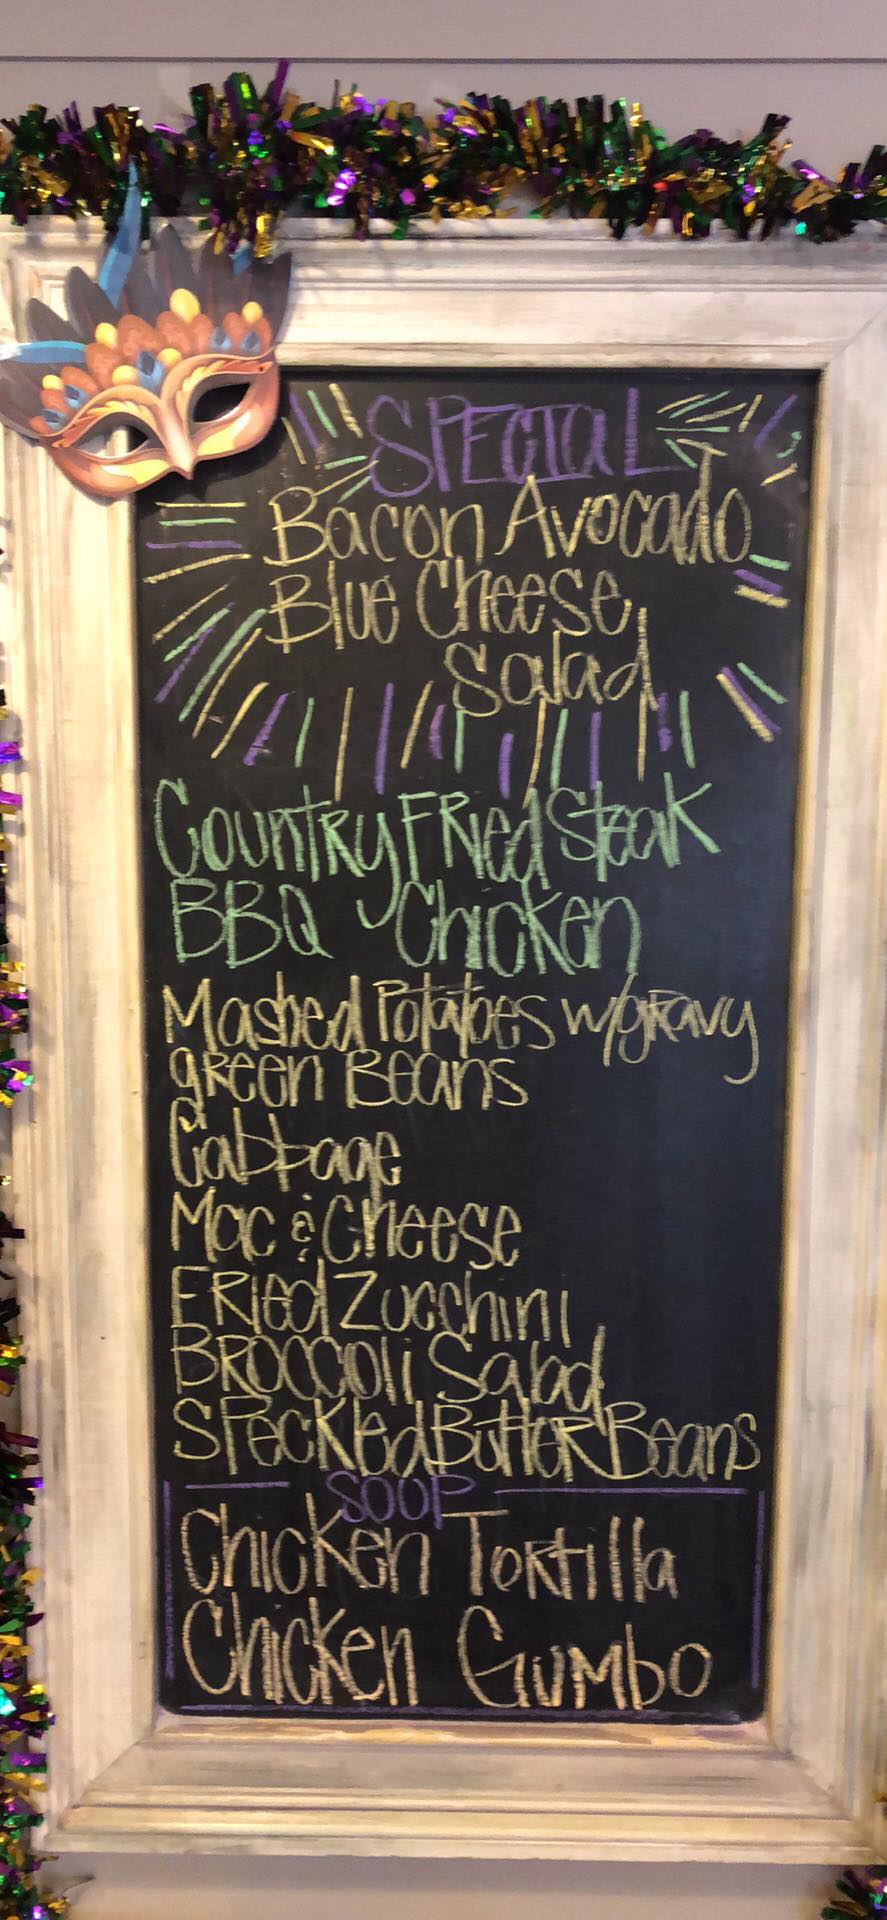 SPECIAL
Bacon Avocado
Blue Cheese
Salad
Country Fried Steak
BBQ Chicken
Mashed Potatoes w/gravy
green Beans
Cabbage
Mac & Cheese
Fried Zucchini
Broccoli Salad
Speckled Butter Beans
SOUP
Chicken Tortilla
Chicken Gumbo